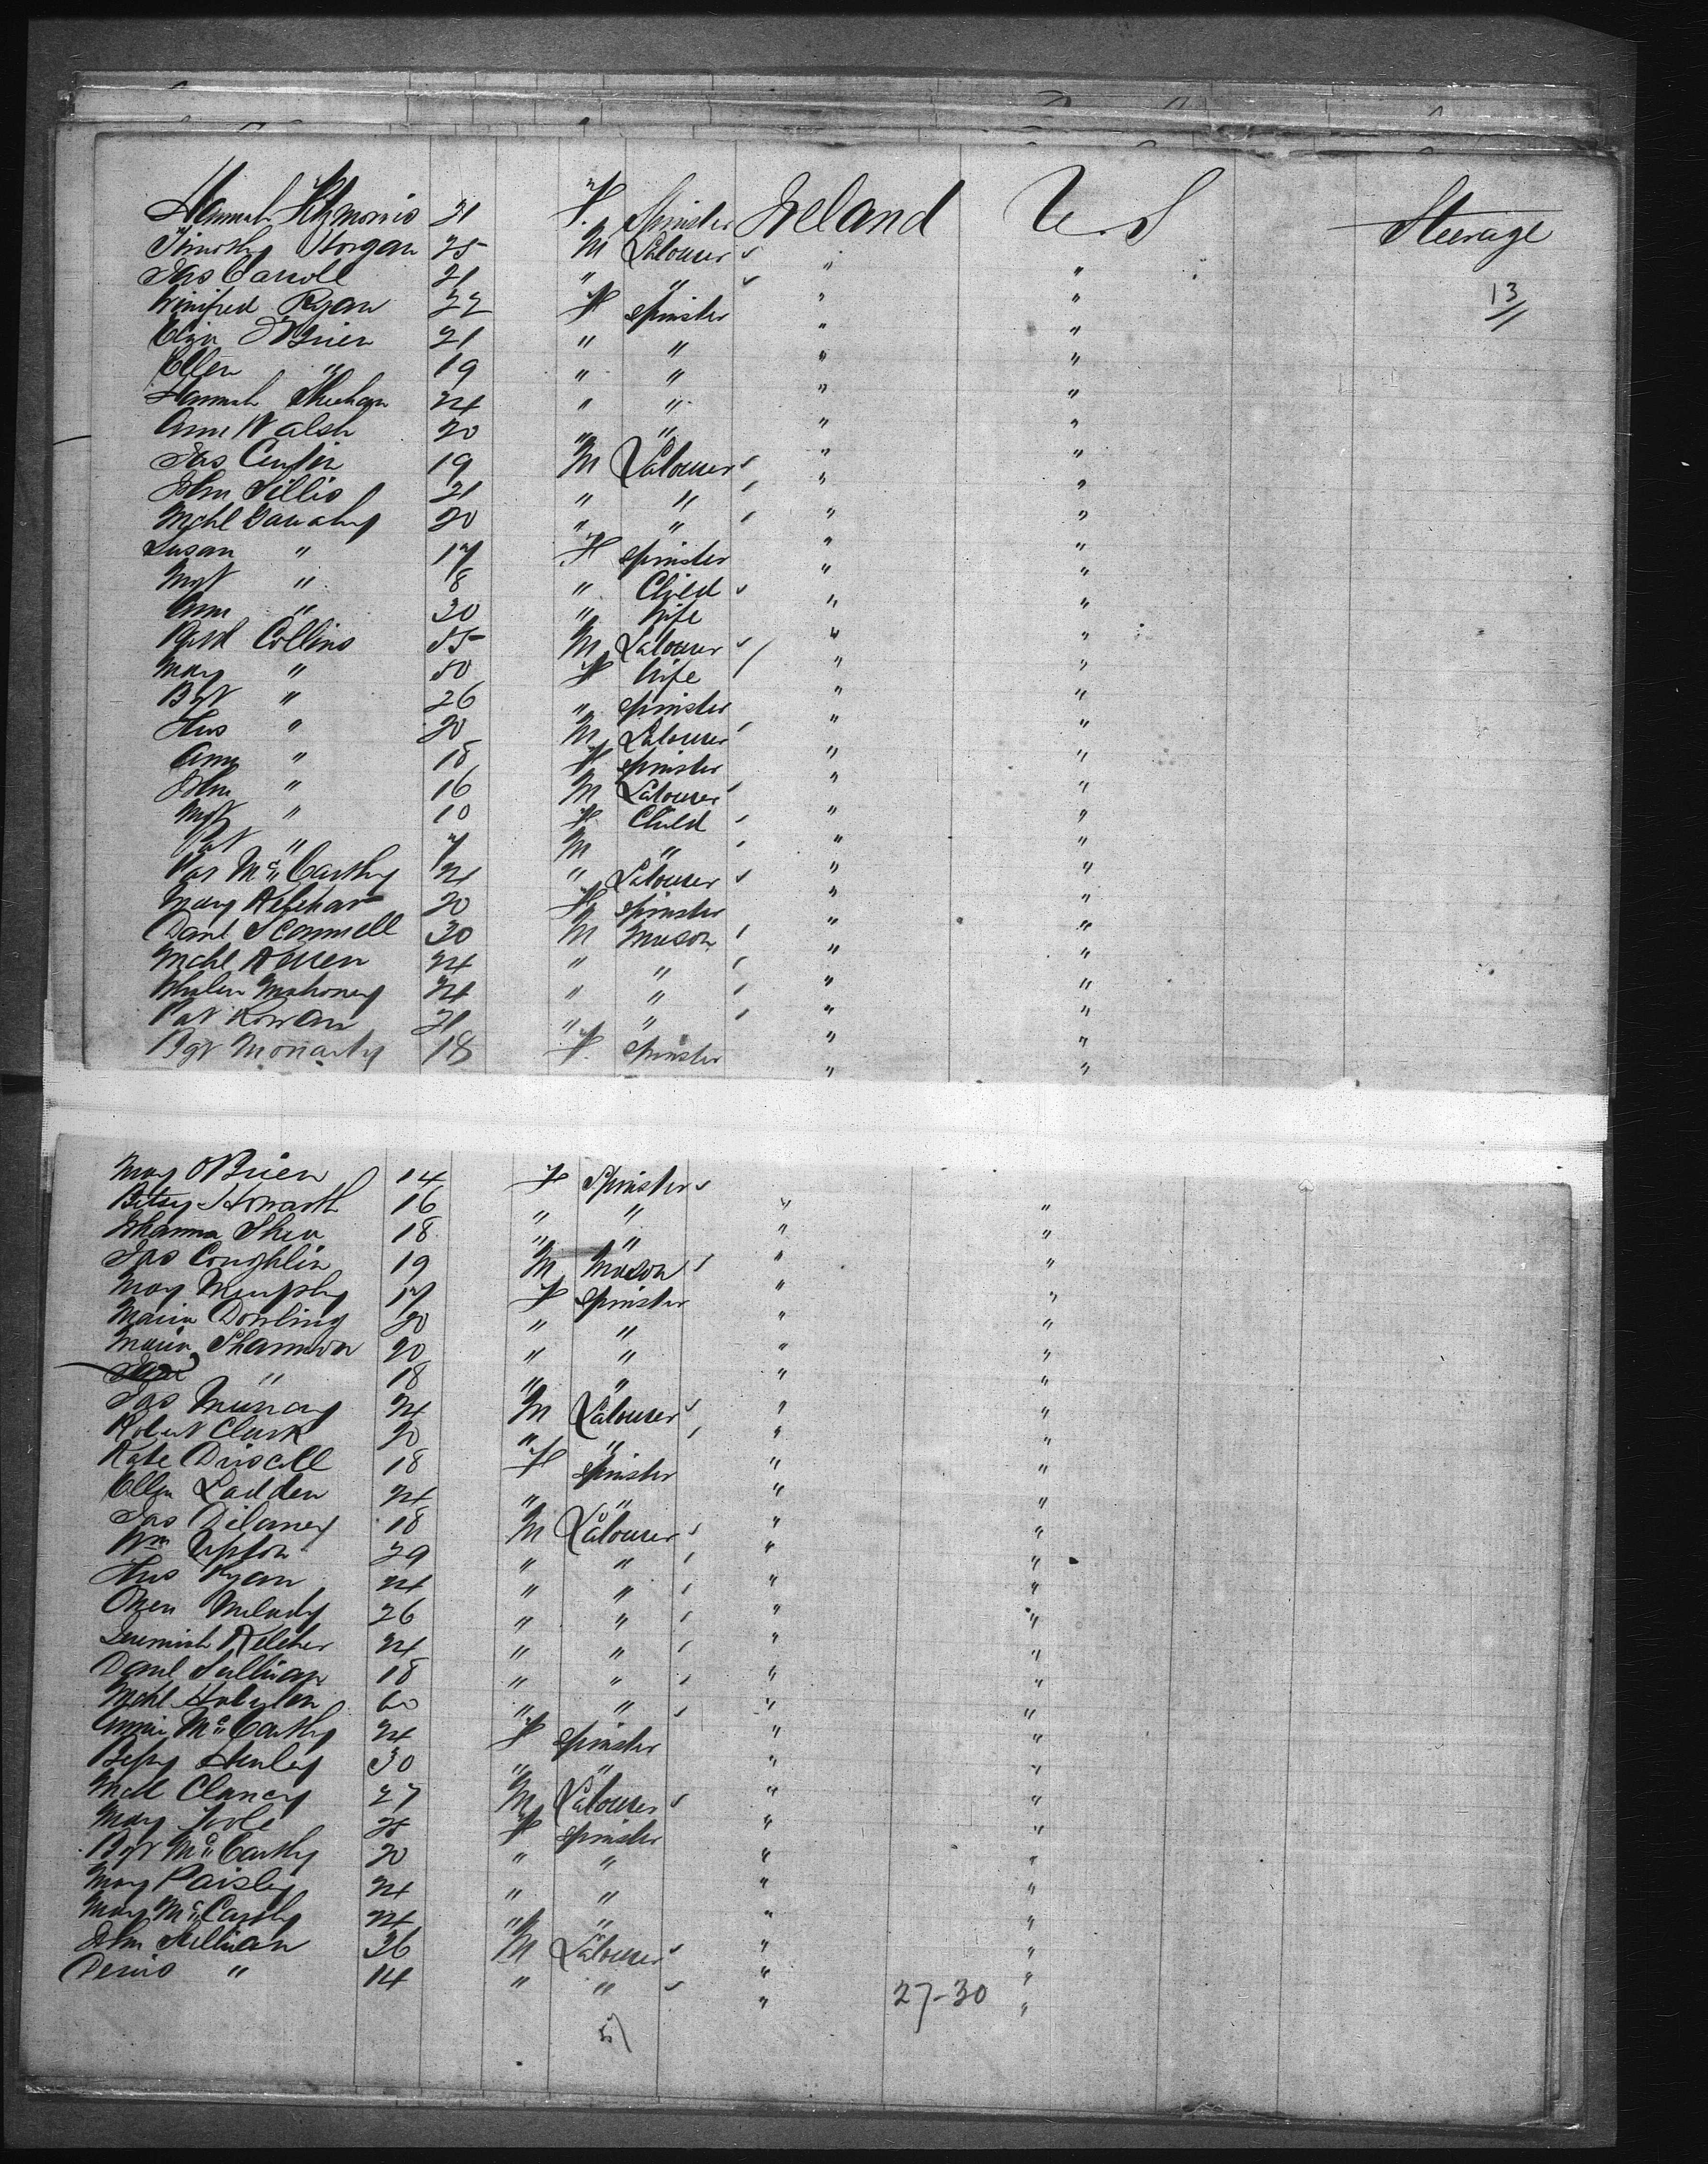 Hannah Fitzmorris 21 F. Spinster Ireland U. S Steerage
Timothy Horgan 25 M Labourer " "
Jas Carroll 21 " " " " 13/
Winifred Ryan 22 F Spinster " "
Eliza OBrien 21 " " " "
Ellen " 19 " " " "
Hannah Sheehan 24 " " " "
Ann Walsh 20 " " " "
Jas 19 M Labourer " "
John Sillis 21 " " " "
Mchl 20 " " " "
Susan " 17 F Spinster " "
Mgt " 8 " Child " "
Ann " 30 " Wife " "
Collins 55 M Labourer " "
Mary " 50 F Wife " "
Bgt " 26 " Spinster " "
Thos " 20 M Labourer " "
Ann " 18 F Spinster " "
John " 16 M Labourer " "
Mgt " 10 F Child " "
Pat " 7 M " " "
McCarthy 24 " Labourer " "
Mary 20 F Spinster " "
Danl 30 M Mason " "
Mchl 24 " " " "
Mahoney 24 " " " "
Pat Rowan 21 " " " "
Bgt Moriarty 18 F Spinster " "
Mary OBrien 14 F Spinster " "
Betsy Howarth 16 " " " "
Johanna Shea 18 " " " "
Jas Coughlin 19 M Mason " "
Mary Murphy 17 F Spinster " "
Maria Dowling 20 " " " "
Maria Shannon 20 " " " "
" 18 " " " "
Jas Murray 24 M Labourer " "
Robert Clark 20 " " " "
Kate Driscoll 18 F Spinster " "
Ellen Ladden 24 " " " "
Jas Dilaney 18 M Labourer " "
Wm Upton 29 " " " "
Thos Ryan 24 " " " "
Owen Melady 26 " " " "
Jeremiah Keleher 24 " " " "
Danl Sullivan 18 " " " "
Mchl 60 " " " "
Annie McCarthy 24 F Spinster " "
Betsy Henley 30 " " " "
Mchl Clancy 27 M Labourer " "
Mary Toole 25 F Spinster " "
Bgt McCarthy 20 " " " "
Mary Paisley 24 " " " "
Mary McCarthy 24 " " " "
John Sullivan 36 M Labourer " "
Denis " 14 " " " "
27-30